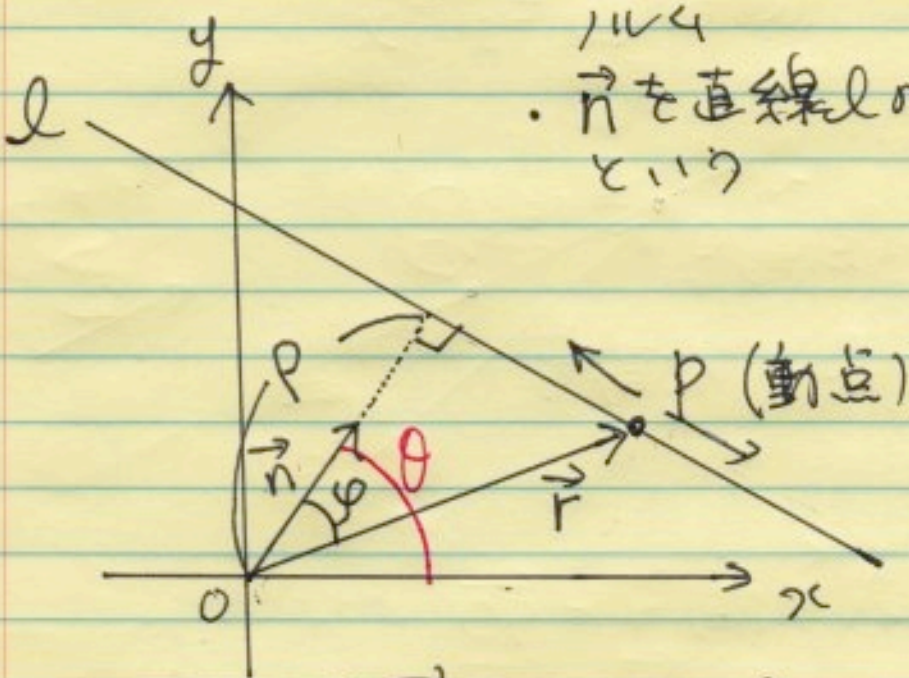 ハルム
・n⃗を直線lの
という
y
l
ρ
P(動点)
n⃗
θ
φ
r⃗
O
x